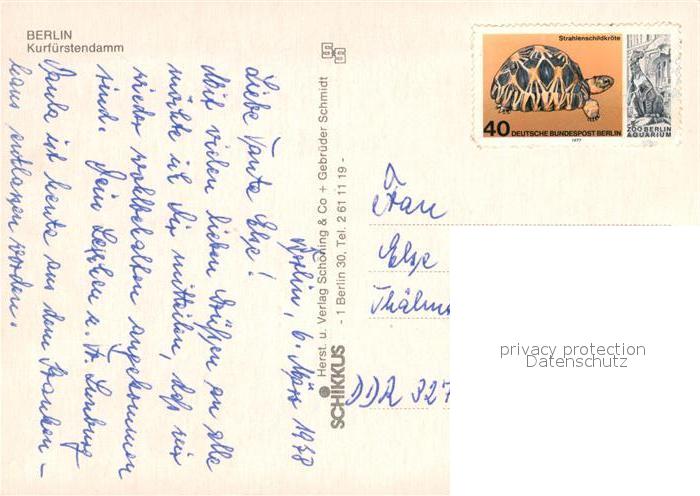 BERLIN
Kurfürstendamm
Strahlenschildkröte
40 DEUTSCHE BUNDESPOST BERLIN
1977
ZOO BERLIN
AQUARIUM
SCHIKKUS Herst. u. Verlag Schöning & Co + Gebrüder Schmidt
- 1 Berlin 30, Tel. 2 61 11 19 -
Berlin, 6. März 1978
Liebe Tante Else!
Mit vielen lieben Grüßen an alle
möchte ich Dir mitteilen, daß wir
wieder wohlbehalten angekommen
sind. Dein u.
Paula ist heute aus dem Kranken-
haus entlassen worden.
Frau
Else
Thälm
DDR 327
privacy protection
Datenschutz